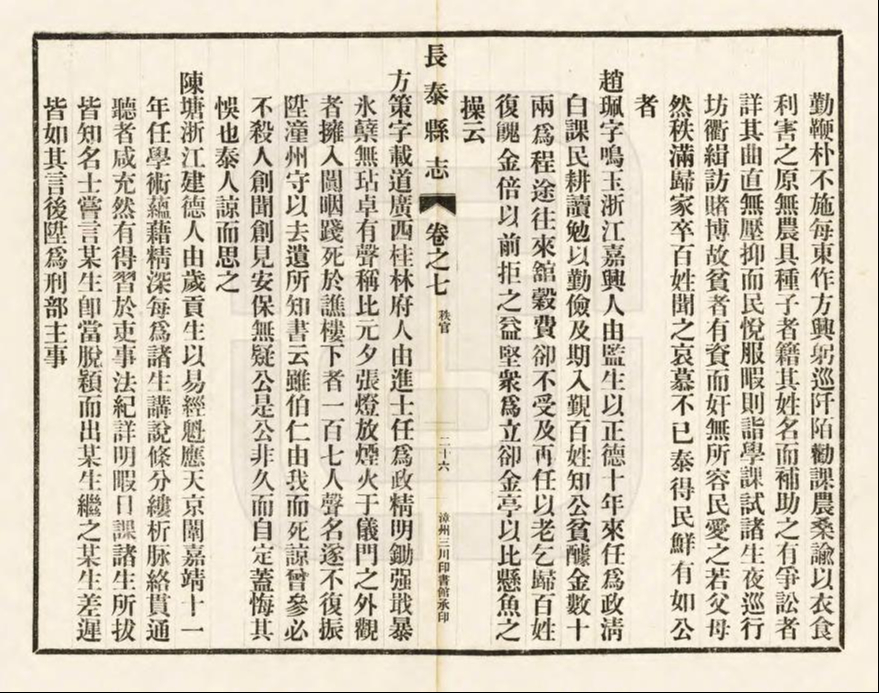 勤鞭朴不施每東作方興躬巡阡陌勸課農桑諭以衣食
利害之原無農具種子者籍其姓名而補助之有爭訟者
詳其曲直無壓抑而民悅服暇則詣學課試諸生夜巡行
坊衢緝訪賭博故貧者有資而奸無所容民愛之若父母
然秩滿歸家卒百姓聞之哀慕不已泰得民鮮有如公
者
趙珮字鳴玉浙江嘉興人由監生以正德十年來任爲政淸
白課民耕讀勉以勤儉及期入覲百姓知公貧醵金數十
兩爲程途往來舘穀費卻不受及再任以老乞歸百姓
復餽金倍以前拒之益堅衆爲立卻金亭以比懸魚之
操云
長泰縣志
卷之七
秩官
二十六
漳州三川印書館承印
方策字載道廣西桂林府人由進士任爲政精明鋤强戢暴
氷蘗無玷卓有聲稱比元夕張燈放煙火于儀門之外觀
者擁入闐咽踐死於譙樓下者一百七人聲名遂不復振
陞潼州守以去遺所知書云雖伯仁由我而死諒曾參必
不殺人創聞創見安保無疑公是公非久而自定蓋悔其
悞也泰人諒而思之
陳塘浙江建德人由歲貢生以易經魁應天京闈嘉靖十一
年任學術蘊藉精深每爲諸生講說條分縷析脉絡貫通
聽者咸充然有得習於吏事法紀詳明暇日課諸生所拔
皆知名士嘗言某生卽當脫穎而出某生繼之某生差遲
皆如其言後陞爲刑部主事